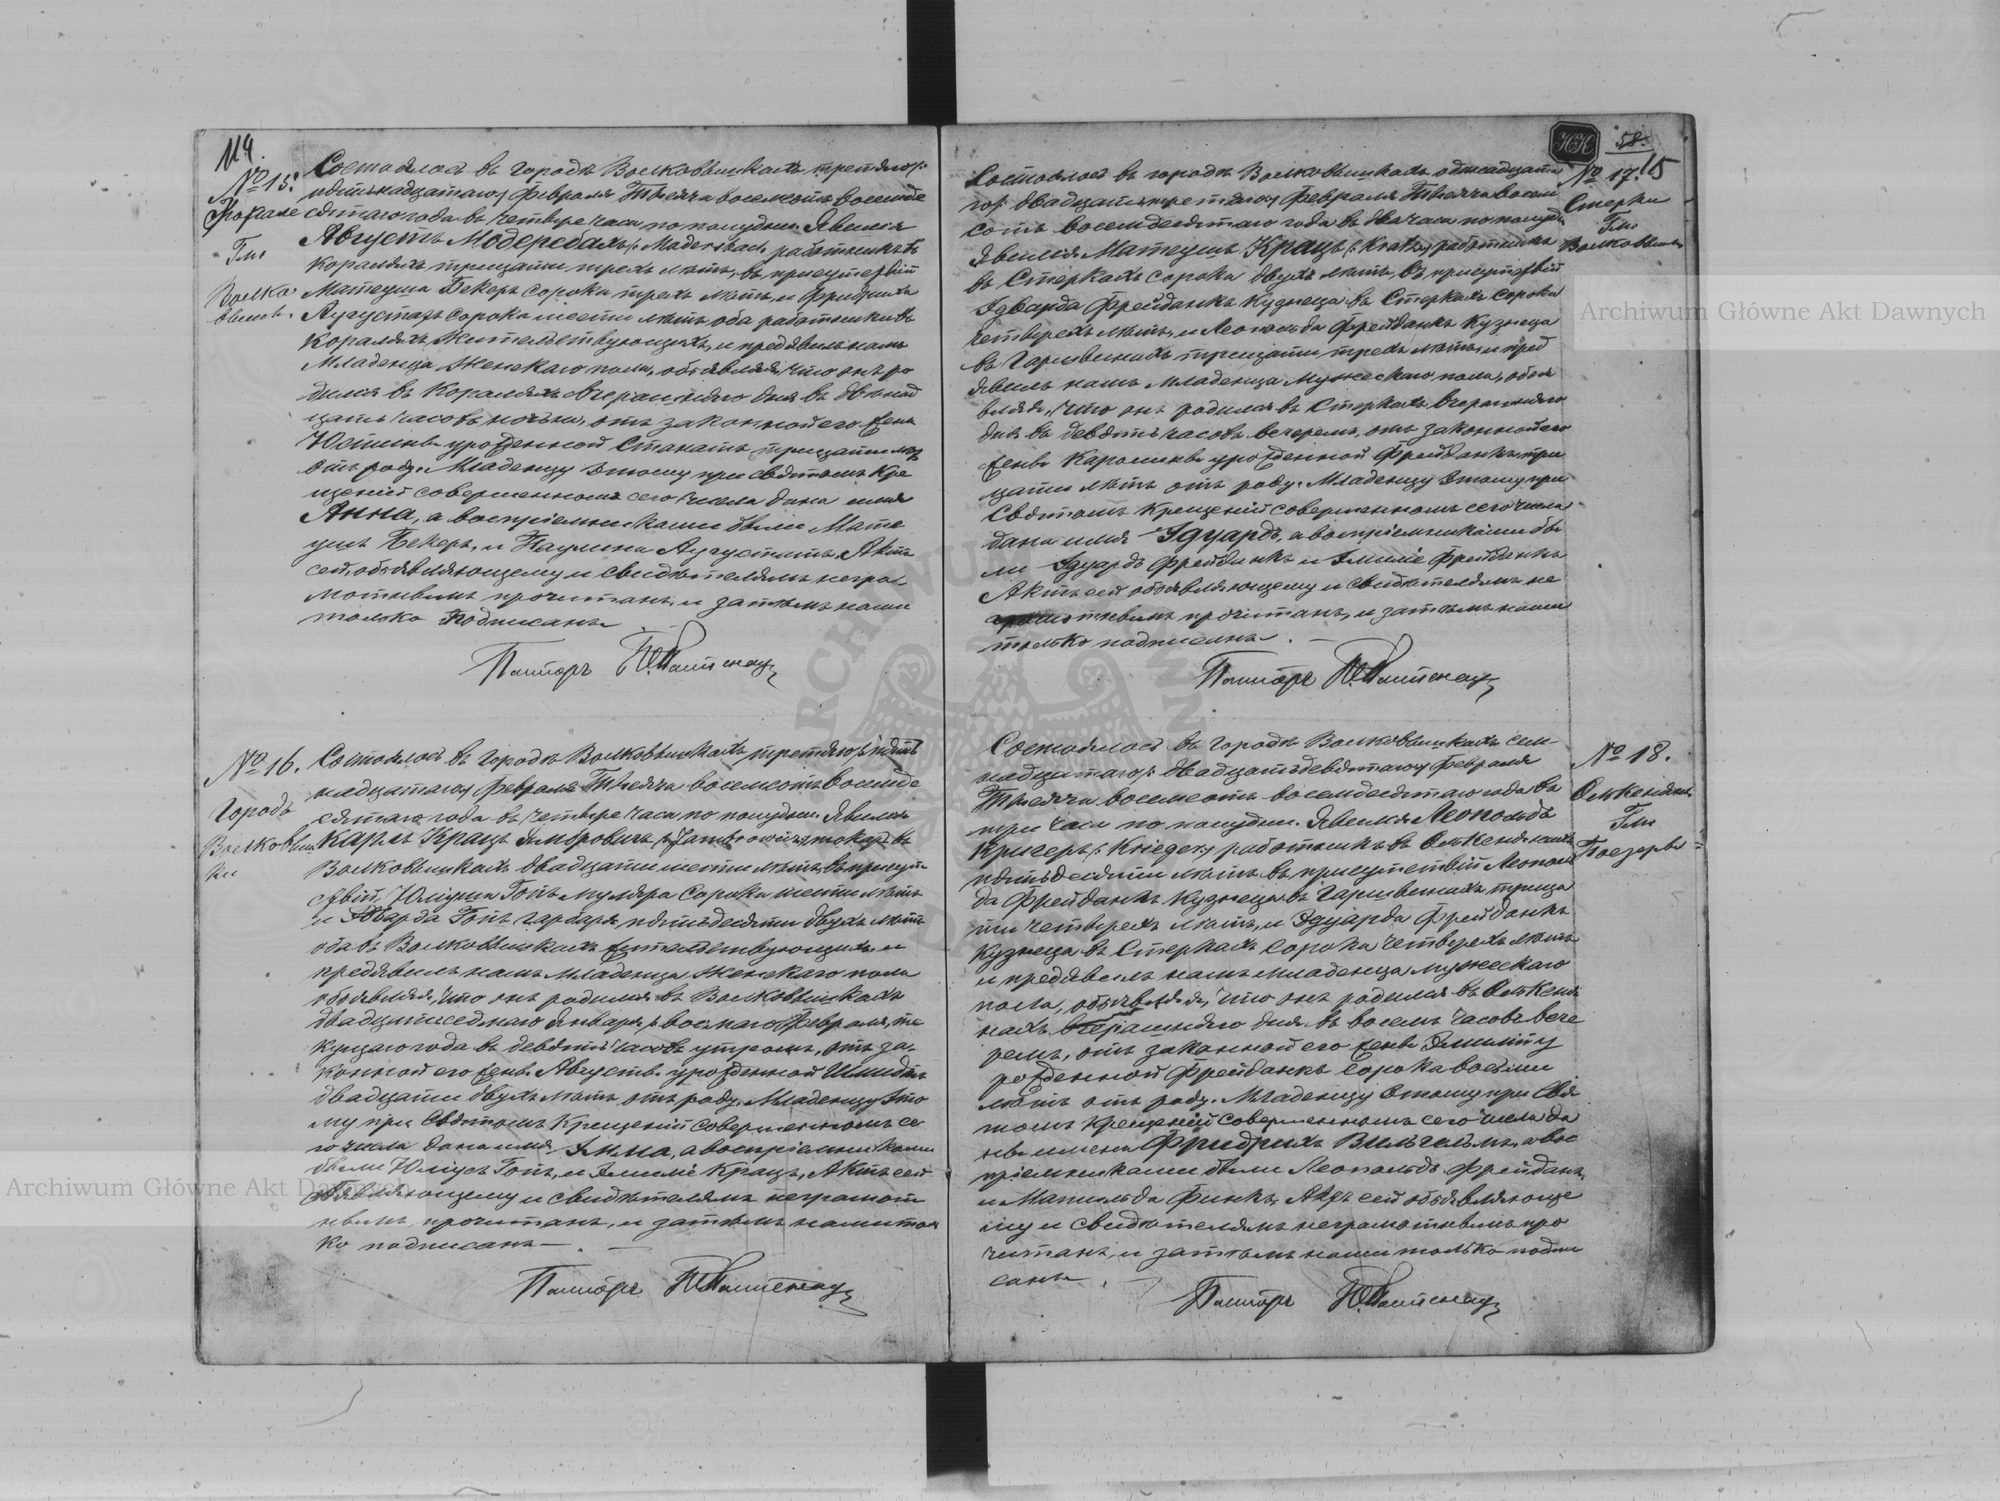 114.
№ 15.
Корале
Гм.
Волко
вышк.
Состоялось въ городѣ Волковышкахъ третяго/
пятьнадцатаго/ Февраля Тысяча восемсотъ восемде
сятаго года въ четвере часа по полудни. Явился
Августъ Модерсбахъ /: Madersbach, работникъ въ
Кораляхъ тридцати трехъ лѣтъ, въ присутствіи
Матеуша Бекеръ сорока трехъ лѣтъ, и Фридриха
Аугустатъ сорока шести лѣтъ оба работники въ
Кораляхъ жительствующихъ, и предявилъ намъ
Младенца Женскаго пола, объявляя, что онъ ро
дился въ Кораляхъ вчерашняго дня въ двѣнад
цать часовъ ночью, отъ законной его жены
Юстины урожденной Станатъ, тридцати лѣтъ
отъ роду. Младенцу этому при святомъ Кре
щеніи совершенномъ сего числа дана имя
Анна, а воспріемниками были Мате
ушъ Бекеръ, и Паулина Аугустатъ. Актъ
сей объявляющему и свидѣтелямъ неграм
мотнымъ прочитанъ, и затѣмъ нами
только подписанъ
Пасторъ
№ 16.
Городъ
Волковыш
ки
Состоялось въ городѣ Волковышкахъ, третяго/: пять
надцатаго/ Февраля Тысяча восемсотъ восемде
сятаго года въ четвере часа по полудни. Явился
Карлъ Крацъ Ямбровичъ /: Jambrowicz, токаръ въ
Волковышкахъ двадцати шести лѣтъ, въ присут
ствіи, Юліуша Гопъ муляра сорока шести лѣтъ
и Эдварда Гопъ гарбаря пятидесяти двухъ лѣтъ
оба въ Волковышкахъ жительствующихъ, и
предявилъ намъ Младенца Женскаго пола
объявляя, что онъ родился въ Волковышкахъ
двадцатиседмаго Января /: восмаго Февраля, те
кущаго года въ девять часовъ утромъ, отъ за
конной его жены Августы урожденной Шмидтъ
двадцати двухъ лѣтъ отъ роду. Младенцу это
му при Святомъ Крещеніи совершенномъ се
го числа дана имя Эмма, а воспріемниками
были Юліусъ Гопъ, и Эмилія Крацъ. Актъ сей
объявляющему и свидѣтелямъ неграмот
нымъ прочитанъ, и затѣмъ нами толь
ко подписанъ
Пасторъ
58.
15
№ 17.
Стерки
Гм.
Волковышк
Состоялось въ городѣ Волковышкахъ одинадцата
го/: двадцатьтретяго/ Февраля Тысяча восем
сотъ восемдесятаго года въ два часа по полудни
Явился Матеушъ Крацъ /: Kratz, работникъ
въ Стеркахъ сорока двухъ лѣтъ, въ присутствіи
Эдварда Фрейданкъ кузнеца въ Стеркахъ сорока
четверехъ лѣтъ, и Леопольда Фрейданкъ кузнеца
въ тридцати трехъ лѣтъ, и пред
явилъ намъ Младенца Мужескаго пола, объя
вляя, что онъ родился въ Стеркахъ, вчерашняго
дня въ девять часовъ вечеромъ, отъ законной его
жены Каролины урожденной Фрейданкъ, три
цати лѣтъ отъ роду. Младенцу этому при
Святомъ Крещеніи совершенномъ сего числа
дана имя Эдуардъ, а воспріемниками бы
ли Эдуардъ Фрейданкъ и Эмилія Фрейданкъ
Актъ сей объявляющему и свидѣтелямъ не
грамотнымъ прочитанъ, и затѣмъ нами
только подписанъ
Пасторъ
№ 18.
Гм.
Состоялось въ городѣ Волковышкахъ сем
надцатаго/: двадцатьдевятаго/ Февраля
Тысяча восемсотъ восемдесятаго года въ
три часа по полудни. Явился Леопольдъ
Кригеръ /: Krieger, работникъ въ
пятьдесяти лѣтъ, въ присутствіи Леополь
да Фрейданкъ кузнеца въ тридца
ти четверехъ лѣтъ, и Эдуарда Фрейданкъ
кузнеца въ Стеркахъ сорока четверехъ лѣтъ
и предявилъ намъ Младенца мужескаго
пола, объявляя, что онъ родился въ
нахъ вчерашняго дня въ восемъ часовъ вече
ромъ, отъ законной его жены Эмиліи у
рожденной Фрейданкъ сорока восьми
лѣтъ отъ роду. Младенцу этому при Свя
томъ Крещеніи совершенномъ сего числа да
ны имена Фридрихъ Вильгельмъ, а вос
пріемниками были Леопольдъ Фрейданкъ,
и Матильда Финкъ. Актъ сей объявляюще
му и свидѣтелямъ неграмотнымъ про
читанъ, и затѣмъ нами только подпи
санъ
Пасторъ
Archiwum Główne Akt Dawnych
Archiwum Główne Akt Dawnych